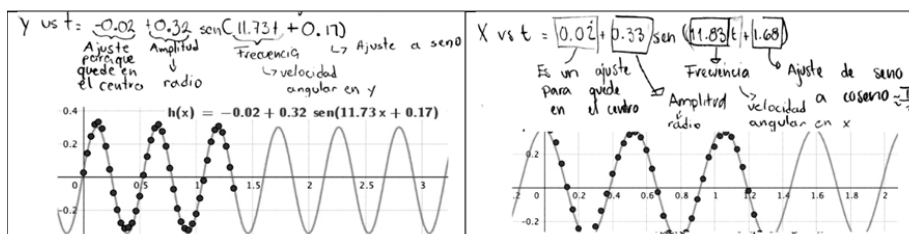 Y vs t = -0.02 + 0.32 sen(11.73t + 0.17)
Ajuste para que quede en el centro
Amplitud
radio
Frecuencia
velocidad angular en y
Ajuste a seno
h(x) = −0.02 + 0.32 sen(11.73x + 0.17)
0.4
0.2
0
0.5
1
1.5
2
2.5
3
-0.2
X vs t = 0.02 + 0.33 sen (11.83 t + 1.68)
Es un ajuste para quede en el centro
Amplitud
radio
Frecuencia
velocidad angular en x
Ajuste de seno a coseno
0.2
.2
0
0.2
0.4
0.6
0.8
1
1.2
1.4
1.6
1.8
2
-0.2